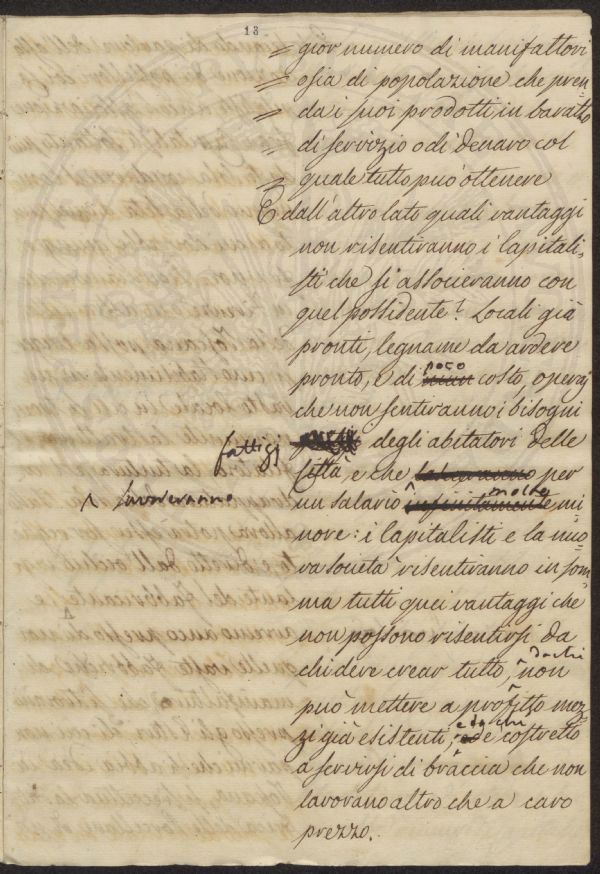 13
〃 gior numero di manifattori
〃 osia di popolazione che pren=
〃 da i suoi prodotti in baratto
〃 di servizio o di denaro col
〃 quale tutto può ottenere
E dall'altro lato quali vantaggi
non risentiranno i Capitali,
sti che si associeranno con
quel possidente? Locali già
pronti, legname da ardere
pronto, e di poco costo, operaj
che non sentiranno i bisogni
fattizj degli abitatori delle
Città, e che lavoreranno per
un salario molto mi=
nore: i Capitalisti e la nuo=
va società risentiranno in som=
ma tutti quei vantaggi che
non possono risentirsi da
chi deve crear tutto, da chi non
può mettere a profitto mez=
zi già esistenti, e da chi è costretto
a servirsi di braccia che non
lavorano altro che a caro
prezzo.